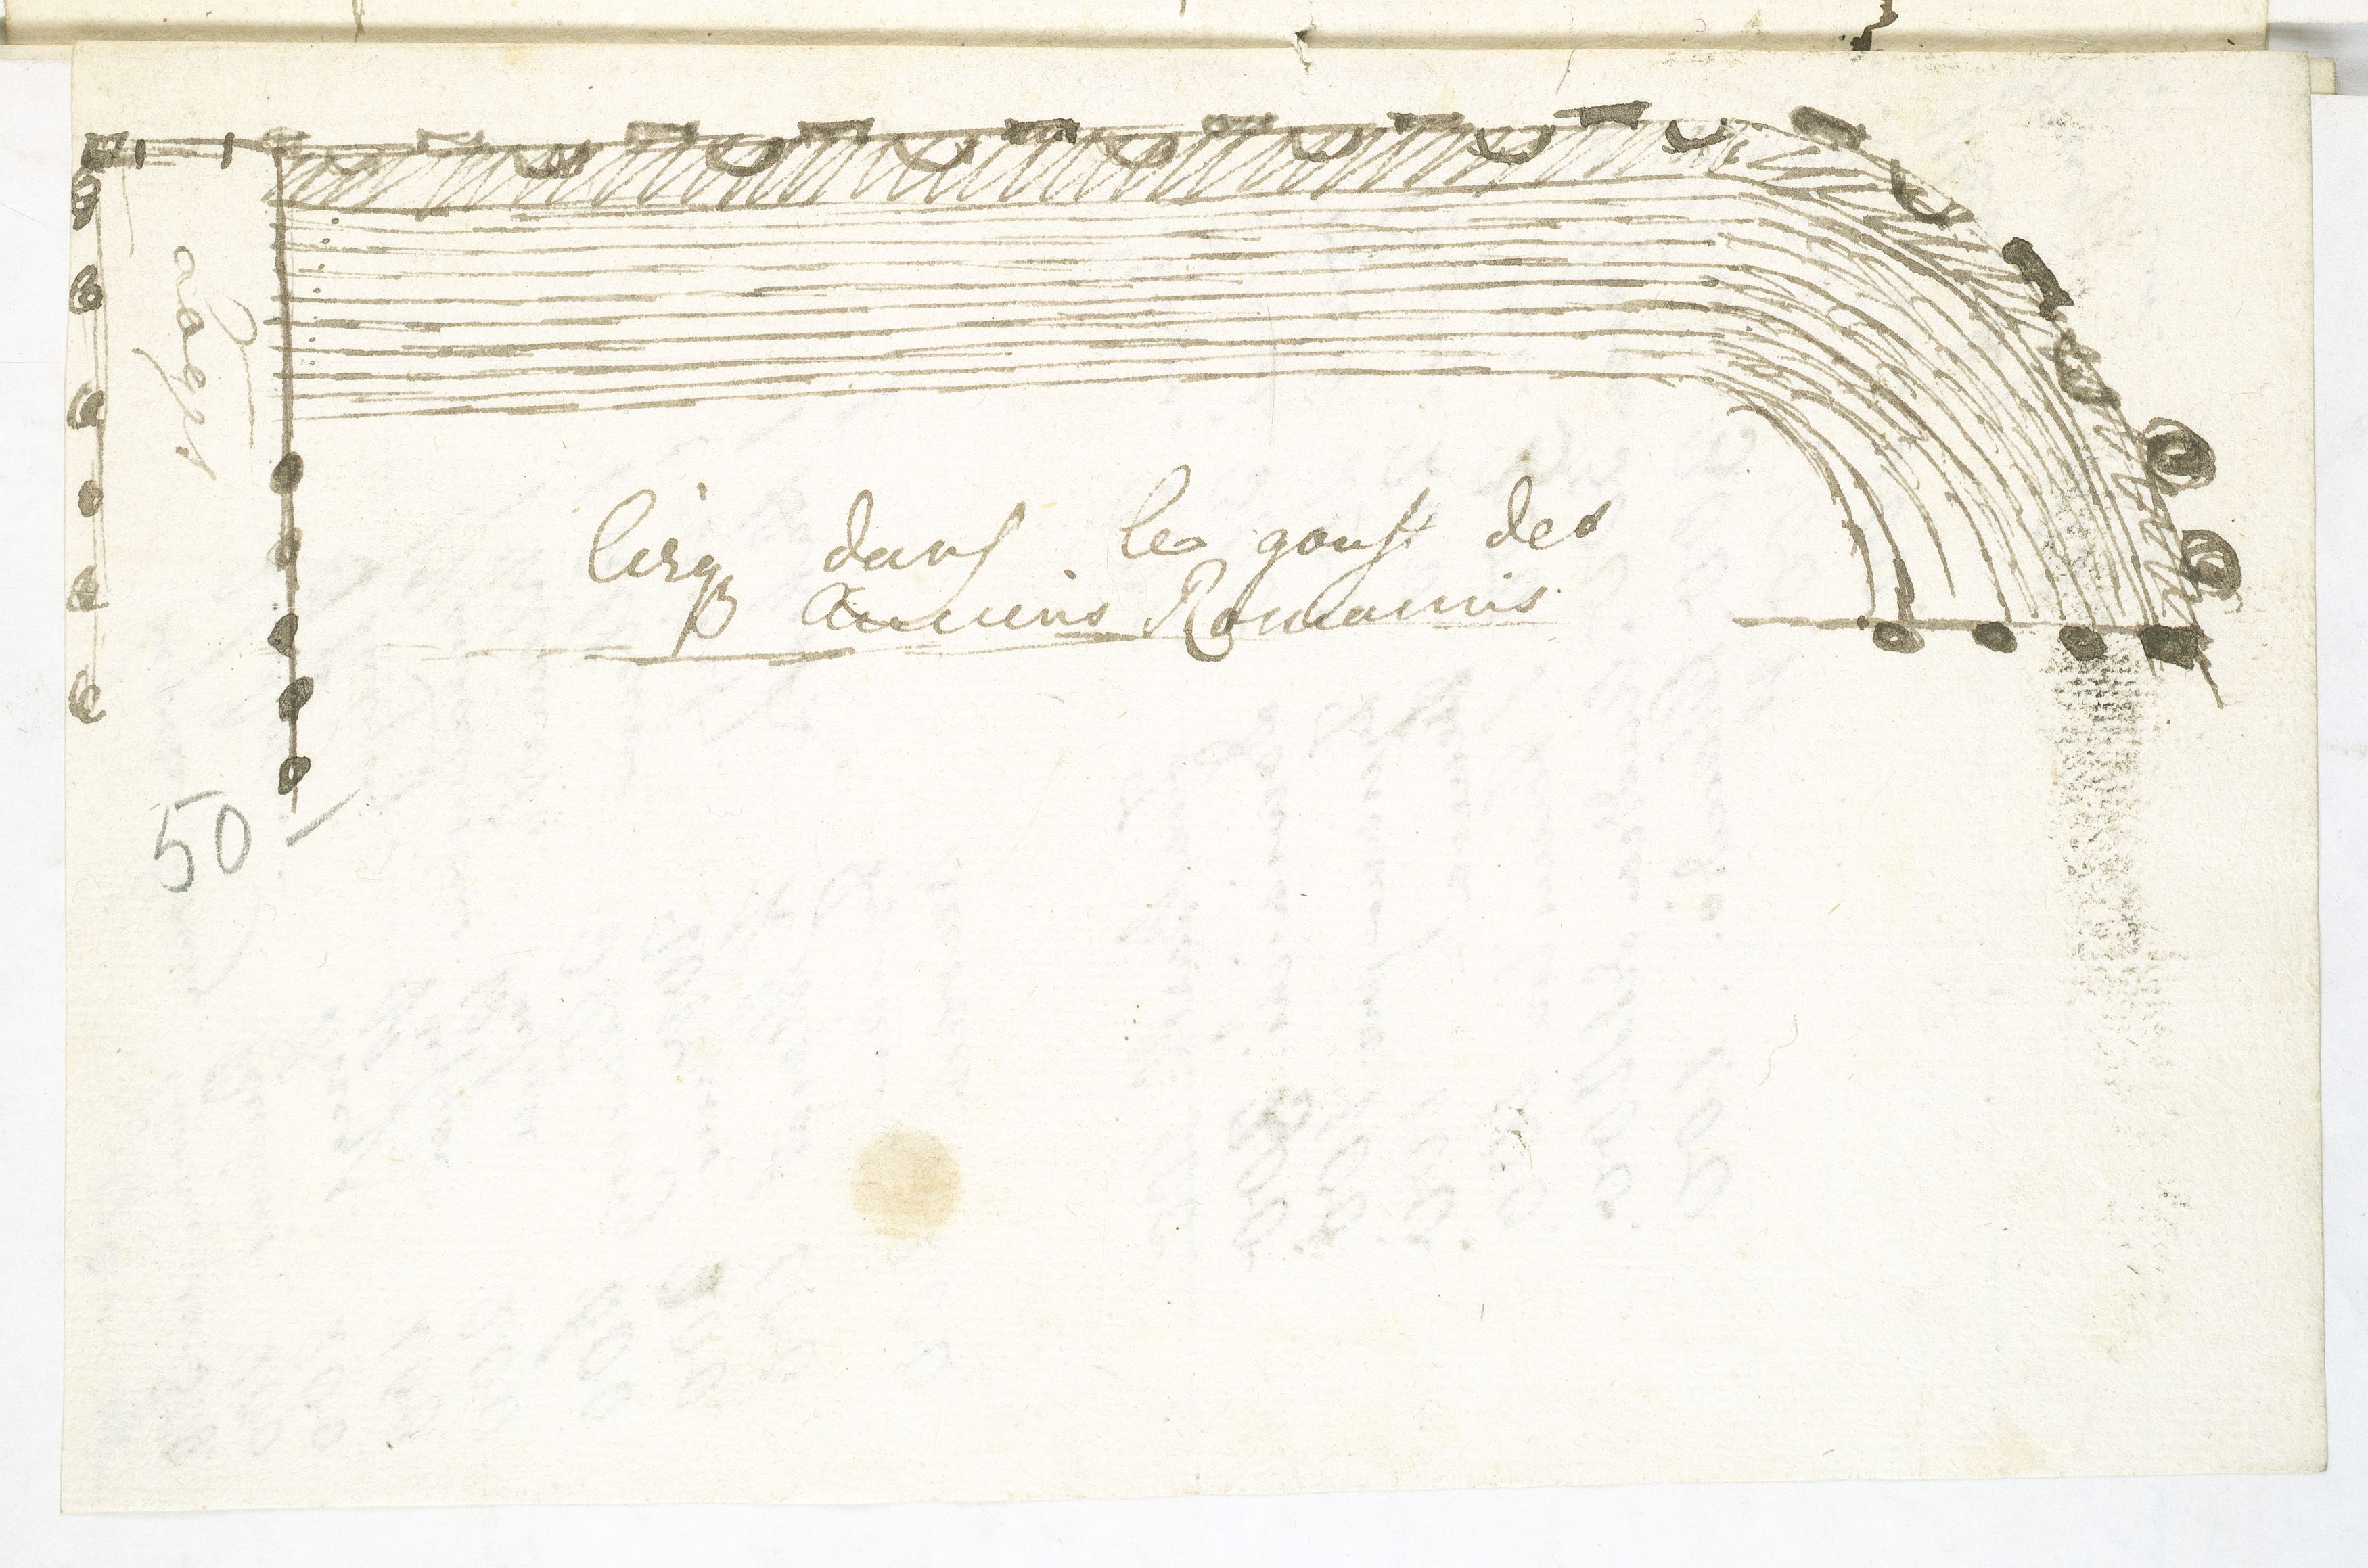 Cirq dans le goust des
Anciens Romains
loges
50